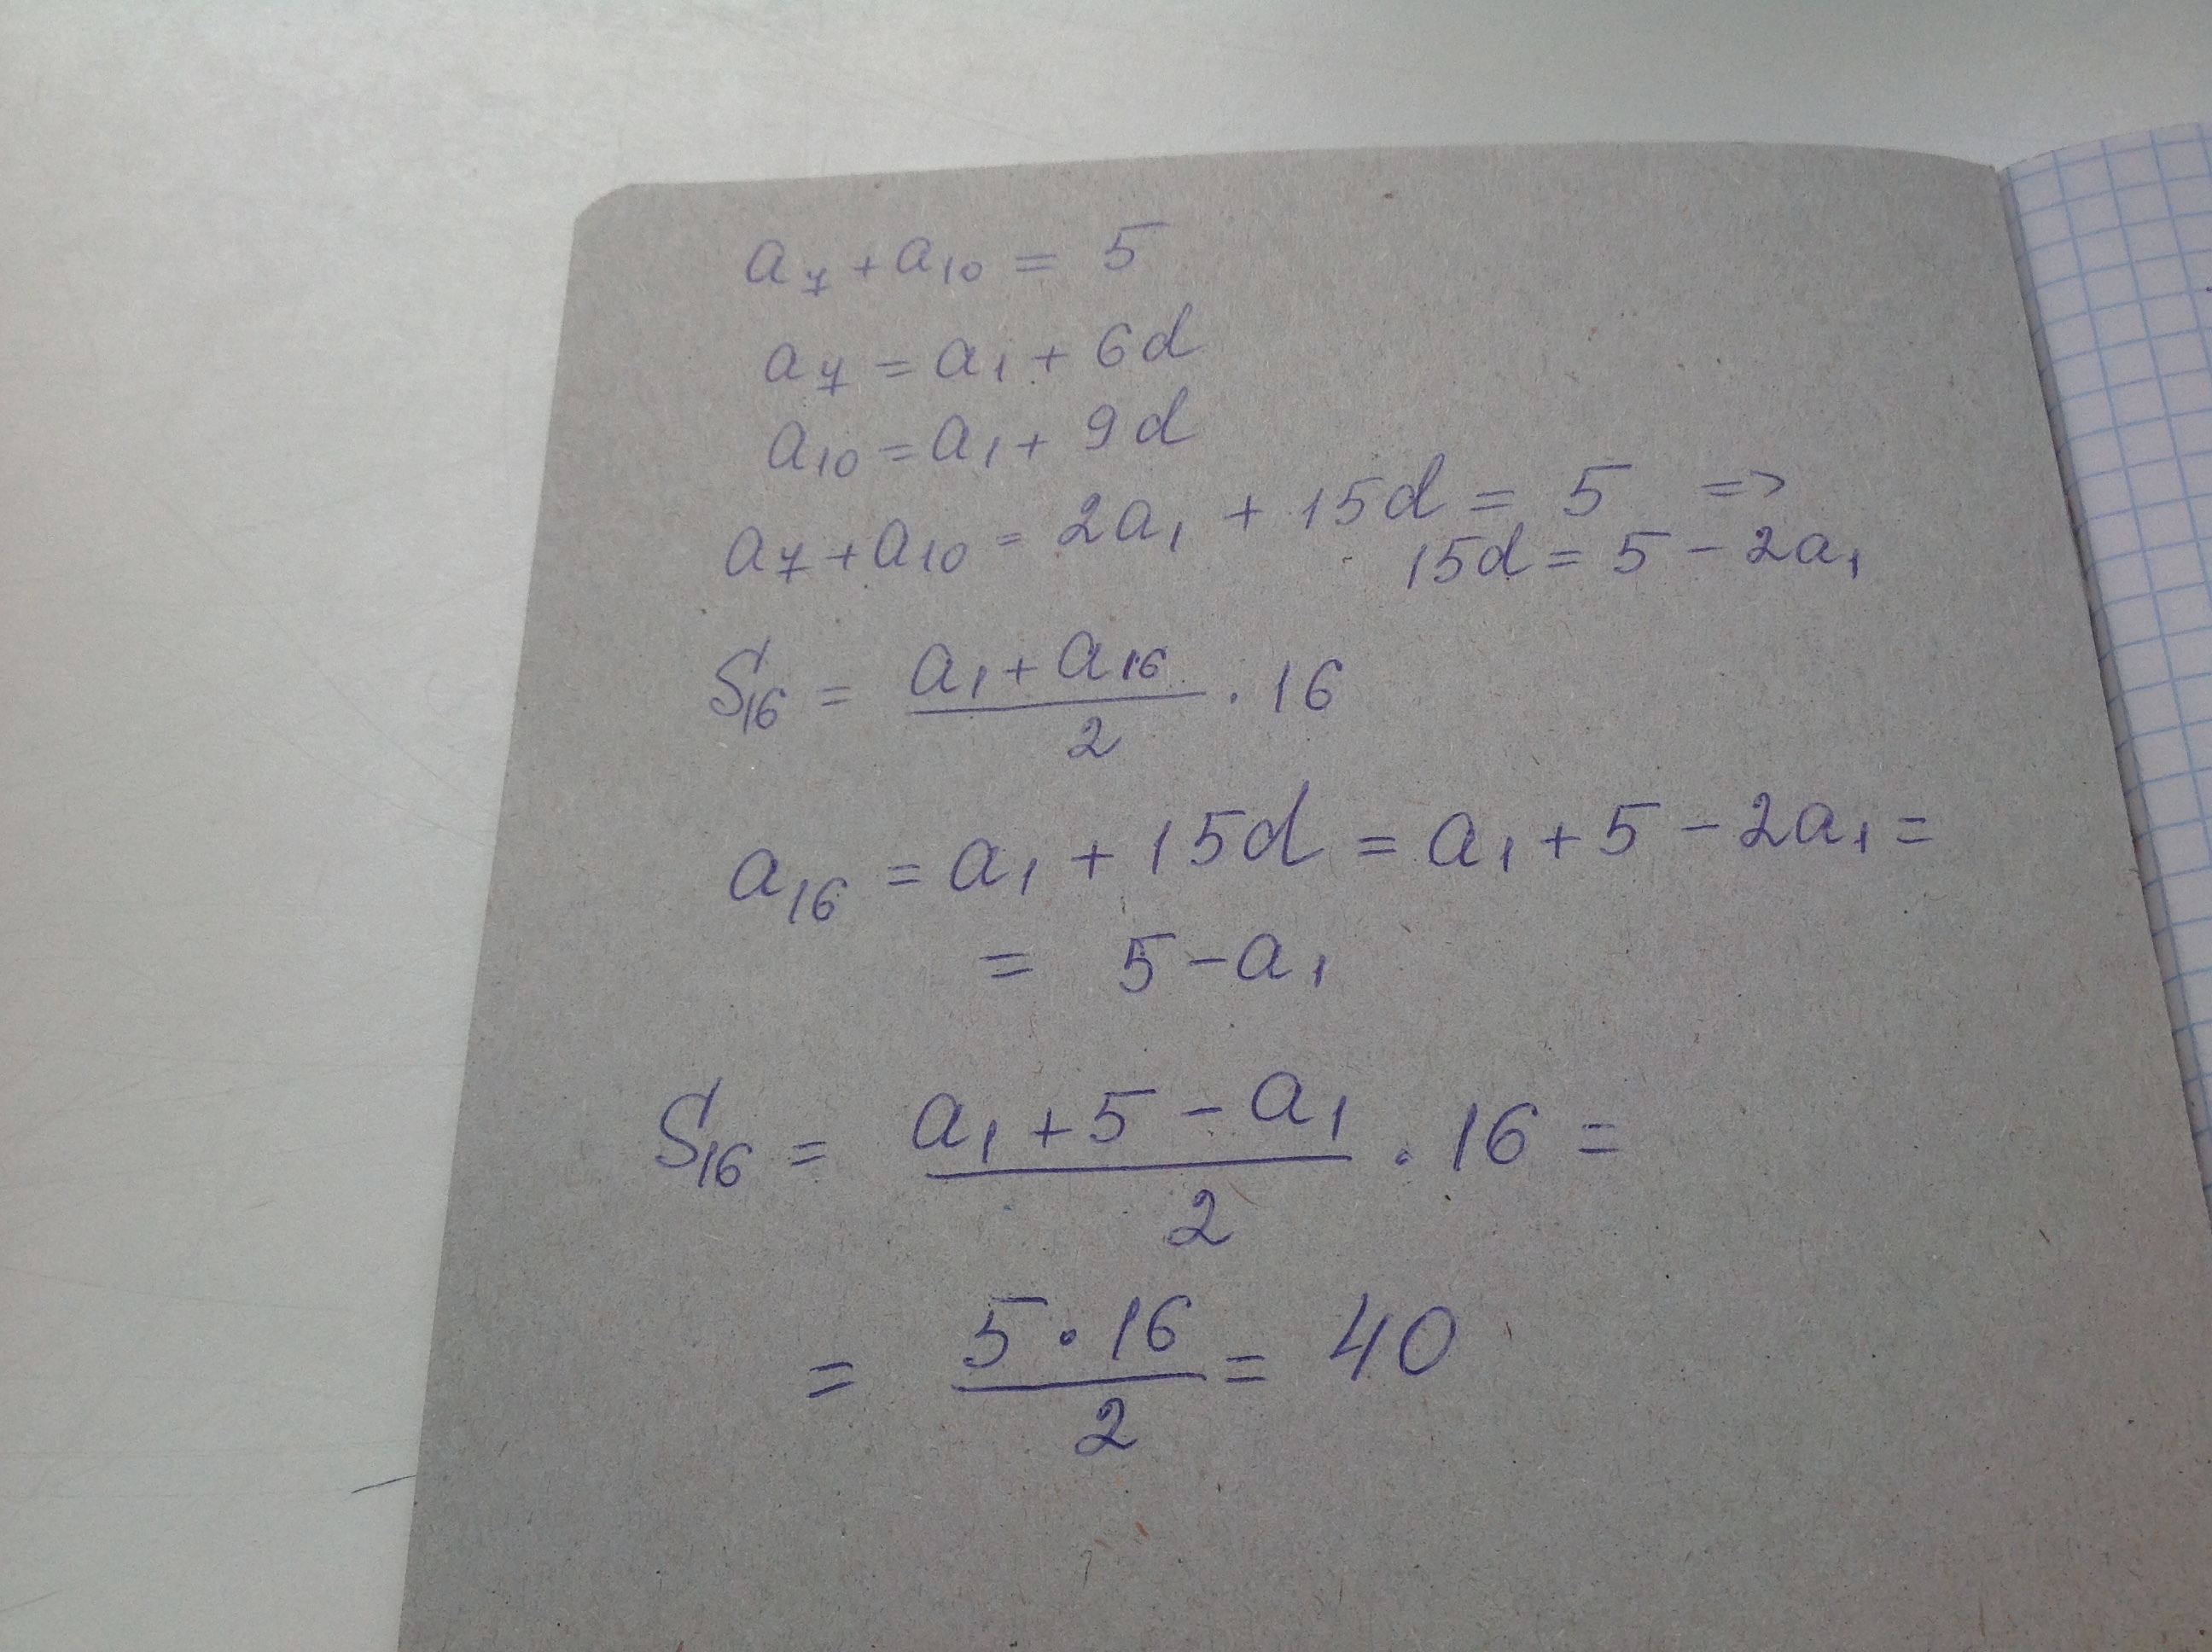 a₇ + a₁₀ = 5
a₇ = a₁ + 6d
a₁₀ = a₁ + 9d
a₇ + a₁₀ = 2a₁ + 15d = 5 =>
15d = 5 - 2a₁
S₁₆ = (a₁ + a₁₆)/2 · 16
a₁₆ = a₁ + 15d = a₁ + 5 - 2a₁ =
= 5 - a₁
S₁₆ = (a₁ + 5 - a₁)/2 · 16 =
= (5 · 16)/2 = 40